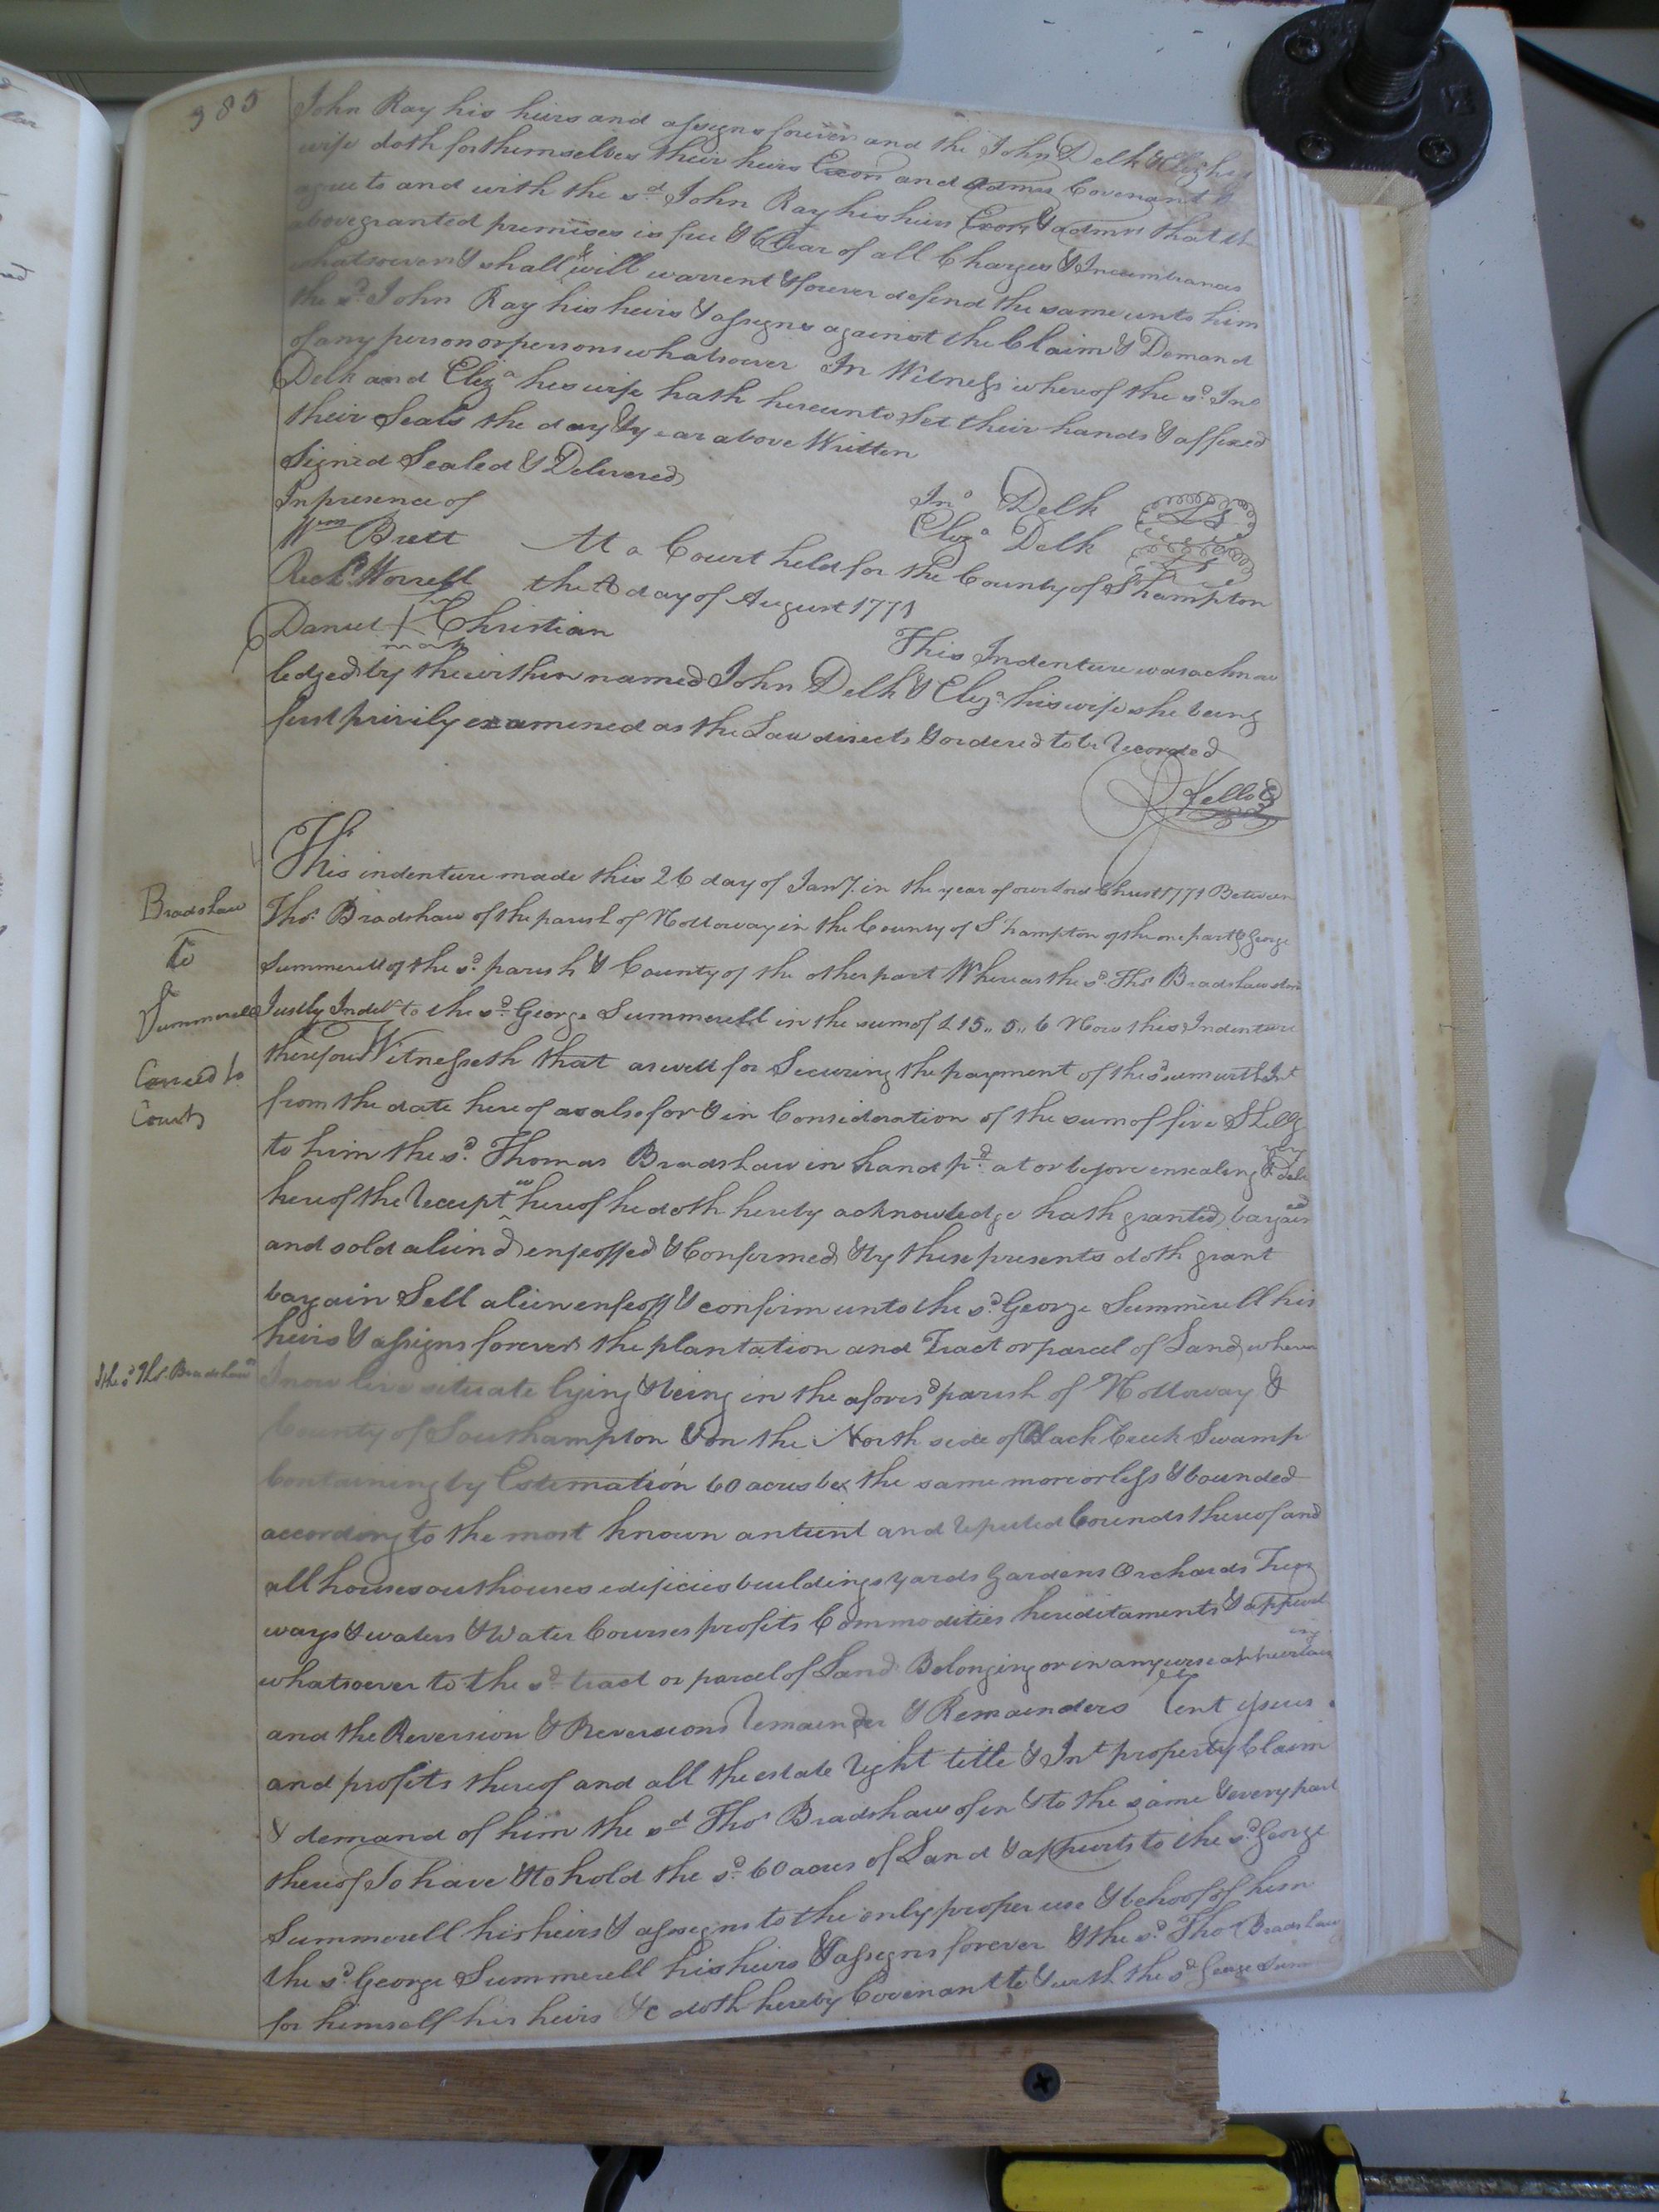 385
John Ray his heirs and assigns forever and the John Delk & Eliz.a his
wife doth for themselves their heirs Exors and admrs Covenant &
agree to and with the sd John Ray his heirs Exors & admrs that the
above granted premises is free & Clear of all Charges & Incumbrances
whatsoever & shall & will warrent & forever defend the same unto him
the sd. John Ray his heirs & assigns against the Claim & Demand
of any person or persons whatsoever In Witness whereof the sd. Jno
Delk and Eliza his wife hath hereunto Set their hands & affixed
their Seals the day & year above Written
Signed Sealed & Delivered
In presence of
Jno Delk LS
Wm Brett
Eliza Delk LS
Richd. Worrell
At a Court held for the County of S'hampton
the 8 day of August 1771
Daniel + Christian
mark
This Indenture was acknow
ledged by the within named John Delk & Eliza his wife she being
first privily examined as the Law directs & ordered to be Recorded
Kello C
This indenture made this 26 day of Jany. in the year of our Lord Christ 1771 Between
Bradshaw
To
Summerell
Carried to
Court
Thos. Bradshaw of the parish of Nottoway in the County of S'hampton of the one part & George
Summerell of the sd. parish & County of the other part Whereas the sd. Thos Bradshaw stan
Justly Indet to the sd. George Summerell in the sum of £15,,5,,6 Now this Indenture
therefore Witnesseth that as well for Securing the payment of the sd sum with Int
from the date hereof as also for & in Consideration of the sum of five Shillg
to him the sd. Thomas Bradshaw in hand pd. at or before ensealing & deli
very
hereof the receipt whereof he doth hereby acknowledge hath granted, bargain
ed
and sold aliend enfeoffed & Confirmed & by these presents doth grant
bargain Sell alien enfeoff & confirm unto the sd. George Summerell his
heirs & assigns forever the plantation and Tract or parcel of Land wherein
I the sd Thos. Bradshaw
I now live situate lying & being in the aforesd parish of Nottoway &
County of Southampton & on the North side of Black Creek Swamp
Containing by Estimation 60 acres be the same more or less & bounded
according to the most known antient and reputed bounds thereof and
all houses outhouses edificies buildings yards Gardens Orchards Trees
ways & waters & Water Courses profits Commodities hereditaments & appurt
whatsoever to the sd. tract or parcel of Land Belonging or in any wise appurtain
ing
and the Reversion & Reversions remainder & Remainders rent issues
and profits thereof and all the estate right title & Int property Claim
& demand of him the sd Thos Bradshaw of in & to the same & every part
thereof To have & to hold the sd. 60 acres of Land & appurts to the sd. George
Summerell his heirs & assigns to the only proper use & behoof of him
the sd. George Summerell his heirs & assigns forever & the sd. Thos Bradshaw
for himself his heirs &c doth hereby Covenant to & with the sd George Sum